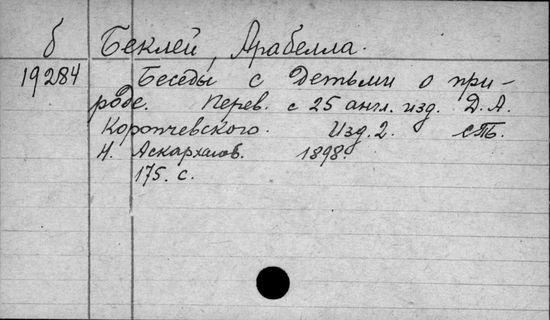 б Беклей, Арабелла.
19284 Беседы с детьми о при-
роде. Перев. с 25 англ. изд. Д. А.
Коропчевского. Изд. 2. СПб.
Н. Аскарханов. 1898.
175. с.